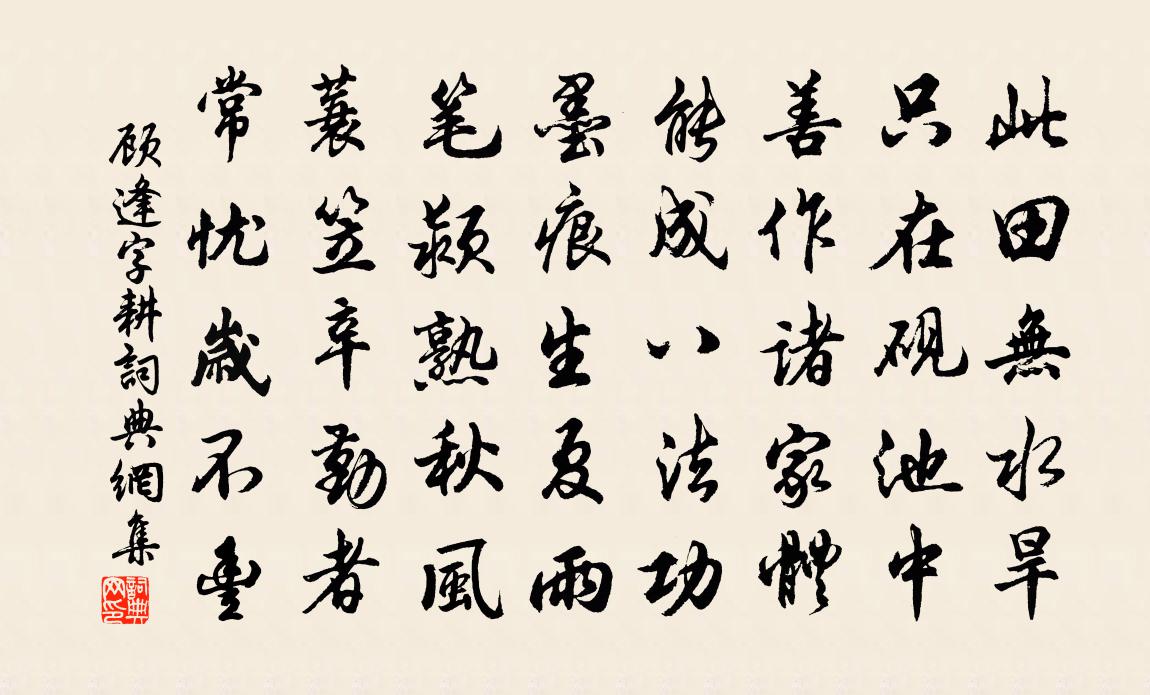 此田無水旱
只在硯池中
善作諸家體
能成八法功
墨痕生夏雨
笔颖熟秋風
蓑笠辛勤者
常忧歲不豊
顾逢字耕詞典網集
詞典網印